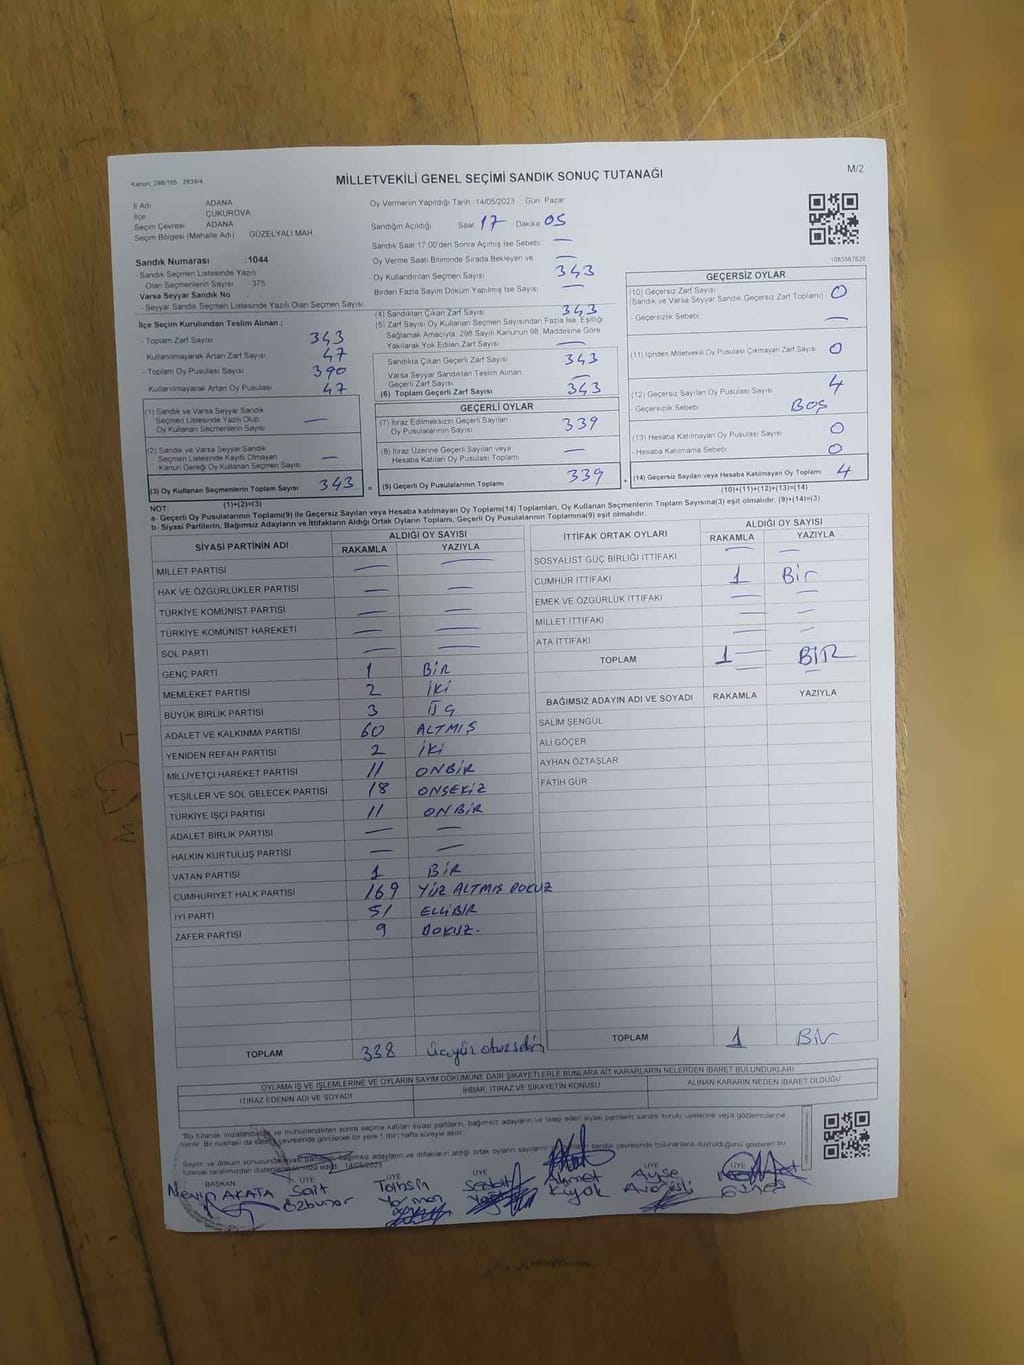 Kanun: 298/105 , 2839/4
MİLLETVEKİLİ GENEL SEÇİMİ SANDIK SONUÇ TUTANAĞI
M/2
İl Adı ADANA
İlçe ÇUKUROVA
Seçim Çevresi ADANA
Seçim Bölgesi (Mahalle Adı) GÜZELYALI MAH.
Sandık Numarası :1044
- Sandık Seçmen Listesinde Yazılı
Olan Seçmenlerin Sayısı 375
Varsa Seyyar Sandık No :
- Seyyar Sandık Seçmen Listesinde Yazılı Olan Seçmen Sayısı
İlçe Seçim Kurulundan Teslim Alınan ;
- Toplam Zarf Sayısı 343
- Kullanılmayarak Artan Zarf Sayısı 47
- Toplam Oy Pusulası Sayısı 390
- Kullanılmayarak Artan Oy Pusulası 47
(1) Sandık ve Varsa Seyyar Sandık
Seçmen Listesinde Yazılı Olup
Oy Kullanan Seçmenlerin Sayısı —
(2) Sandık ve Varsa Seyyar Sandık
Seçmen Listesinde Kayıtlı Olmayan
Kanun Gereği Oy Kullanan Seçmen Sayısı —
(3) Oy Kullanan Seçmenlerin Toplam Sayısı 343
(1)+(2)=(3)
Oy Vermenin Yapıldığı Tarih :14/05/2023 Gün: Pazar
Sandığın Açıldığı Saat 17 Dakika 05
Sandık Saat 17:00'den Sonra Açılmış İse Sebebi —
Oy Verme Saati Bitiminde Sırada Bekleyen ve —
Oy Kullandırılan Seçmen Sayısı 343
Birden Fazla Sayım Döküm Yapılmış İse Sayısı —
(4) Sandıktan Çıkan Zarf Sayısı 343
(5) Zarf Sayısı Oy Kullanan Seçmen Sayısından Fazla İse, Eşitliği
Sağlamak Amacıyla, 298 Sayılı Kanunun 98. Maddesine Göre
Yakılarak Yok Edilen Zarf Sayısı —
Sandıkta Çıkan Geçerli Zarf Sayısı 343
Varsa Seyyar Sandıktan Teslim Alınan
Geçerli Zarf Sayısı —
(6) Toplam Geçerli Zarf Sayısı 343
GEÇERLİ OYLAR
(7) İtiraz Edilmeksizin Geçerli Sayılan
Oy Pusulalarının Sayısı 339
(8) İtiraz Üzerine Geçerli Sayılan veya
Hesaba Katılan Oy Pusulası Toplamı —
= (9) Geçerli Oy Pusulalarının Toplamı 339
1083567628
GEÇERSİZ OYLAR
(10) Geçersiz Zarf Sayısı
(Sandık ve Varsa Seyyar Sandık Geçersiz Zarf Toplamı) 0
- Geçersizlik Sebebi —
(11) İçinden Milletvekili Oy Pusulası Çıkmayan Zarf Sayısı 0
(12) Geçersiz Sayılan Oy Pusulası Sayısı 4
- Geçersizlik Sebebi BOŞ
(13) Hesaba Katılmayan Oy Pusulası Sayısı 0
- Hesaba Katılmama Sebebi 0
+ (14) Geçersiz Sayılan veya Hesaba Katılmayan Oy Toplamı 4
(10)+(11)+(12)+(13)=(14)
NOT:
a- Geçerli Oy Pusulaları Toplamı(9) ile Geçersiz Sayılan veya Hesaba Katılmayan Oy Toplamı(14) Toplamları, Oy Kullanan Seçmenlerin Toplam Sayısına(3) eşit olmalıdır. (9)+(14)=(3)
b- Siyasi Partilerin, Bağımsız Adayların ve İttifakların Aldığı Ortak Oyların Toplamı, Geçerli Oy Pusulalarının Toplamına(9) eşit olmalıdır.
SİYASİ PARTİNİN ADI ALDIĞI OY SAYISI
RAKAMLA YAZIYLA
MİLLET PARTİSİ — —
HAK VE ÖZGÜRLÜKLER PARTİSİ — —
TÜRKİYE KOMÜNİST PARTİSİ — —
TÜRKİYE KOMÜNİST HAREKETİ — —
SOL PARTİ — —
GENÇ PARTİ 1 BİR
MEMLEKET PARTİSİ 2 İKİ
BÜYÜK BİRLİK PARTİSİ 3 ÜÇ
ADALET VE KALKINMA PARTİSİ 60 ALTMIŞ
YENİDEN REFAH PARTİSİ 2 İKİ
MİLLİYETÇİ HAREKET PARTİSİ 11 ONBİR
YEŞİLLER VE SOL GELECEK PARTİSİ 18 ONSEKİZ
TÜRKİYE İŞÇİ PARTİSİ 11 ONBİR
ADALET BİRLİK PARTİSİ — —
HALKIN KURTULUŞ PARTİSİ — —
VATAN PARTİSİ 1 BİR
CUMHURİYET HALK PARTİSİ 169 YÜZ ALTMIŞ DOKUZ
İYİ PARTİ 51 ELLİBİR
ZAFER PARTİSİ 9 DOKUZ.
TOPLAM 338 üçyüzotuzsekiz
İTTİFAK ORTAK OYLARI ALDIĞI OY SAYISI
RAKAMLA YAZIYLA
SOSYALİST GÜÇ BİRLİĞİ İTTİFAKI — —
CUMHUR İTTİFAKI 1 Bir
EMEK VE ÖZGÜRLÜK İTTİFAKI — —
MİLLET İTTİFAKI — —
ATA İTTİFAKI — —
TOPLAM 1 BİR
BAĞIMSIZ ADAYIN ADI VE SOYADI RAKAMLA YAZIYLA
SALİM ŞENGÜL
ALİ GÖÇER
AYHAN ÖZTAŞLAR
FATİH GÜR
TOPLAM 1 Bir
OYLAMA İŞ VE İŞLEMLERİNE VE OYLARIN SAYIM DÖKÜMÜNE DAİR ŞİKAYETLERLE BUNLARA AİT KARARLARIN NELERDEN İBARET BULUNDUKLARI
İTİRAZ EDENİN ADI VE SOYADI İHBAR, İTİRAZ VE ŞİKAYETİN KONUSU ALINAN KARARIN NEDEN İBARET OLDUĞU
"Bu tutanak imzalandıktan ve mühürlendikten sonra seçime katılan siyasi partilerin, bağımsız adayların ve talep eden siyasi partilerin sandık kurulu üyelerine veya gözlemcilerine
verilir. Bir nüshası da sandık çevresinde görülecek bir yere 1 (bir) hafta süreyle asılır.
Sayım ve döküm sonucunda siyasi partilerin, bağımsız adayların ve ittifakların aldığı ortak oyların sayılarını sandık çevresinde bulunanlara duyrulduğunu gösteren bu
tutanak tarafımızdan düzenlenerek imza edildi. 14/05/2023
BAŞKAN ÜYE ÜYE ÜYE ÜYE ÜYE
AKATA Sait Özbunar Tahsin Yaman Sedat Ahmet Kıyak Ayşe GÜNEŞ